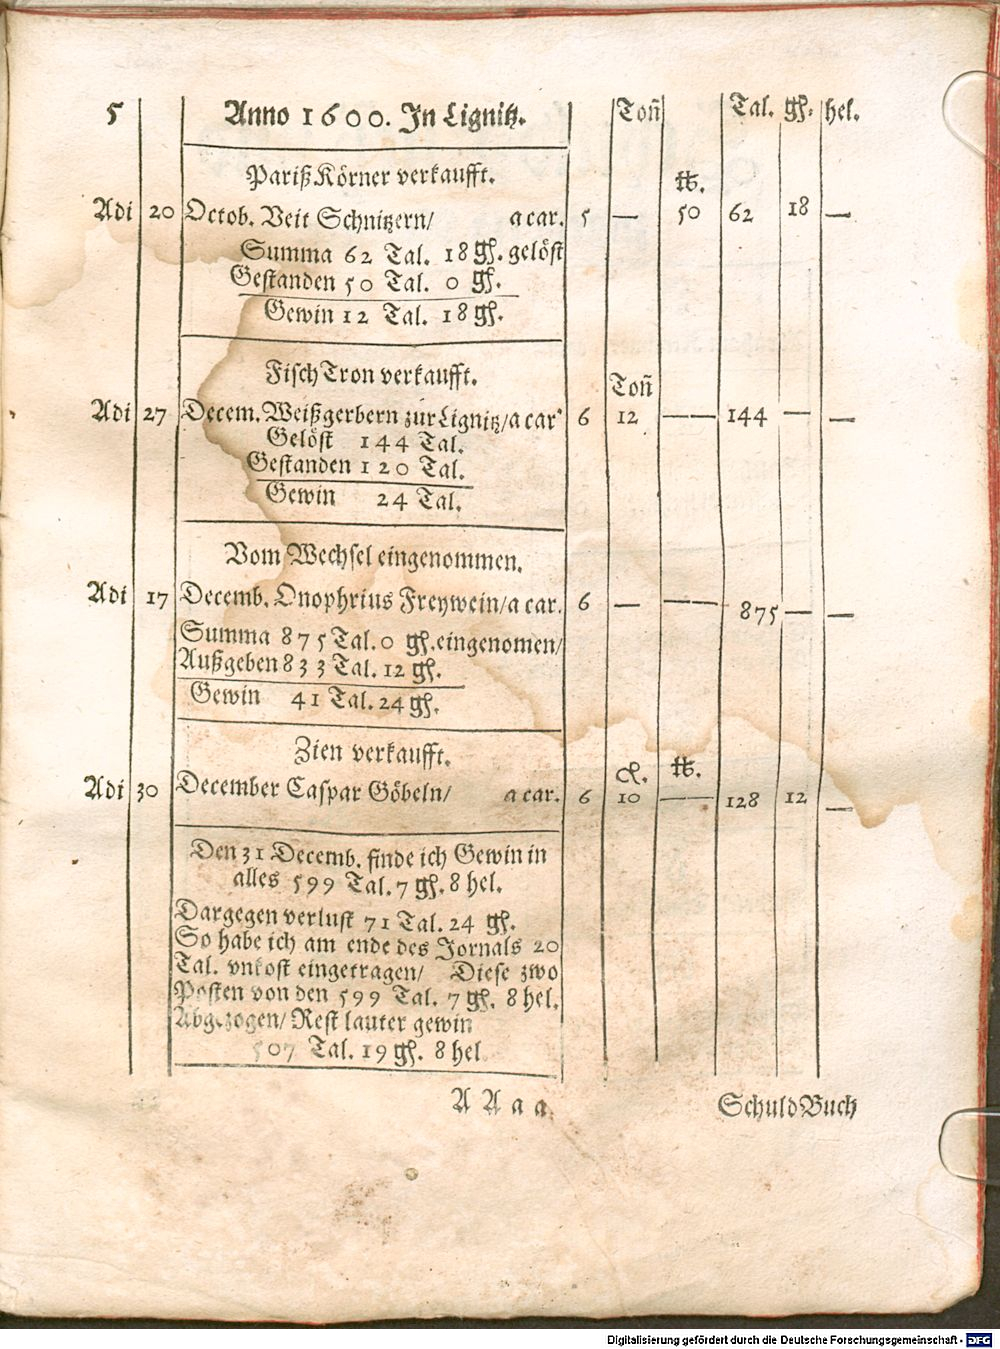 5 Anno 1600. In Lignitz. Toñ Tal. gℌ. hel.
Pariß Körner verkaufft. ℔.
Adi 20 Octob. Veit Schnitzern/ a car. 5 — 50 62 18 —
Summa 62 Tal. 18 gℌ. gelöst
Gestanden 50 Tal. 0 gℌ.
Gewin 12 Tal. 18 gℌ.
Fisch Tron verkaufft. Toñ
Adi 27 Decem. Weißgerbern zur Lignitz/a car. 6 12 — 144 — —
Gelöst 144 Tal.
Gestanden 120 Tal.
Gewin 24 Tal.
Vom Wechsel eingenommen.
Adi 17 Decemb. Onophrius Freywein/a car. 6 — — 875 — —
Summa 875 Tal. 0 gℌ. eingenomen/
Außgeben 833 Tal. 12 gℌ.
Gewin 41 Tal. 24 gℌ.
Zien verkaufft. ℔.
Adi 30 December Caspar Göbeln/ a car. 6 10 — 128 12 —
Den 31 Decemb. finde ich Gewin in
alles 599 Tal. 7 gℌ. 8 hel.
Dargegen verlust 71 Tal. 24 gℌ.
So habe ich am ende des Jornals 20
Tal. vnkost eingetragen/ Diese zwo
Posten von den 599 Tal. 7 gℌ. 8 hel.
Abgezogen/ Rest lauter gewin
507 Tal. 19 gℌ. 8 hel
A A a a. Schuld Buch
Digitalisierung gefördert durch die Deutsche Forschungsgemeinschaft - DFG